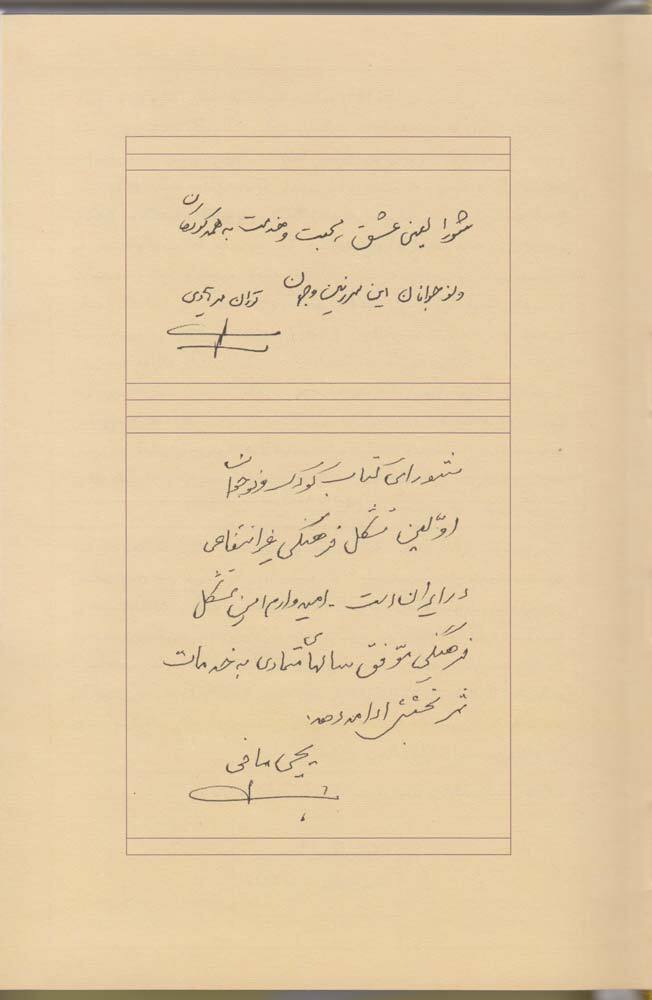 شورا یعنی عشق، محبت و خدمت به همه کودکان
و نوجوانان این سرزمین و جهان توران میرهادی
شورای کتاب کودک و نوجوان
اوّلین تشکل فرهنگی غیرانتفاعی
در ایران است - امیدوارم این تشکل
فرهنگی موّفق سالهای متمادی به خدمات
ثمربخشش ادامه دهد.
یحیی مافی